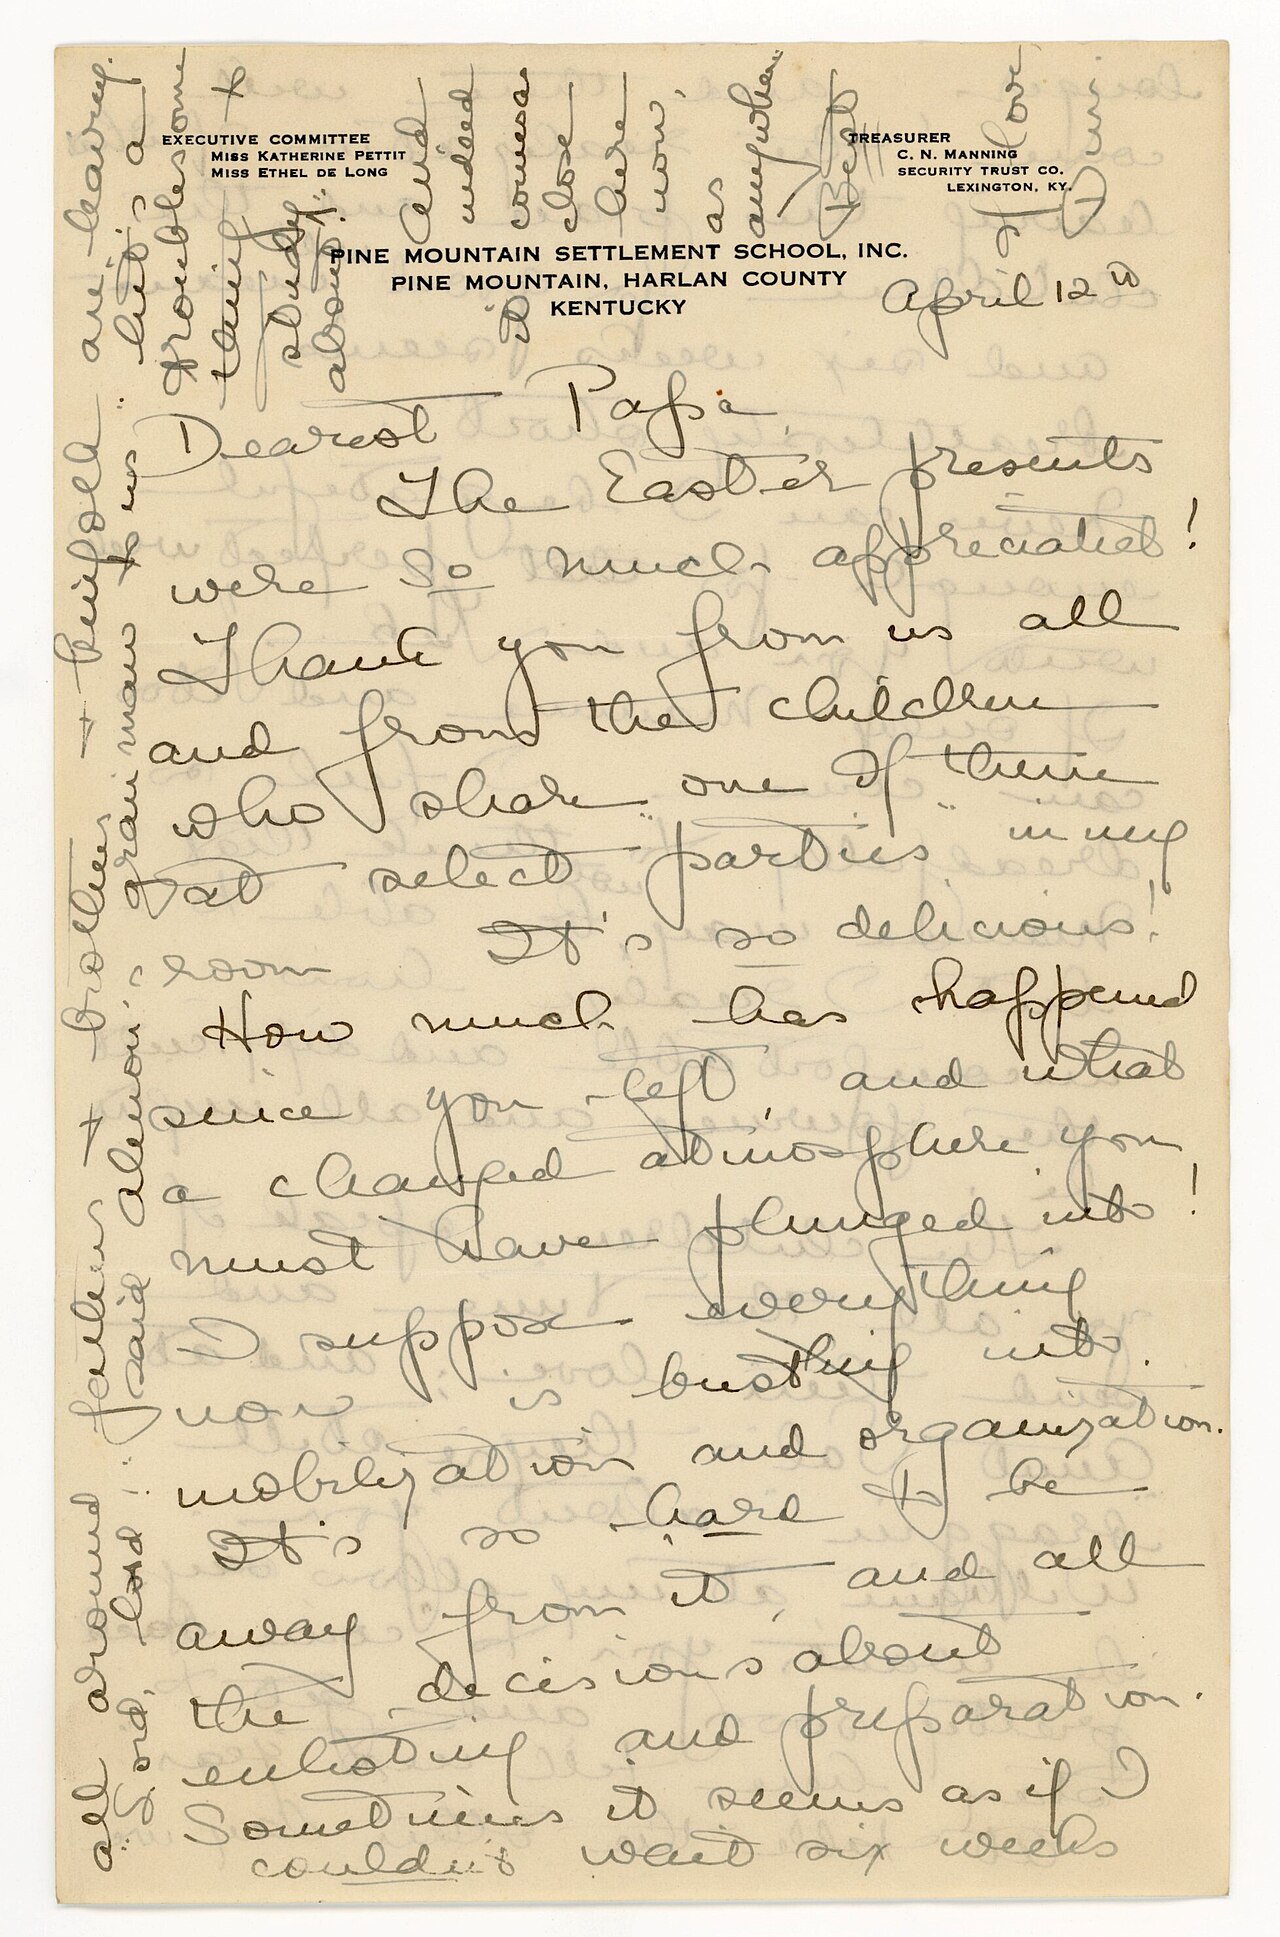 EXECUTIVE COMMITTEE
MISS KATHERINE PETTIT
MISS ETHEL DE LONG
TREASURER
C. N. MANNING
SECURITY TRUST CO.
LEXINGTON, KY.
PINE MOUNTAIN SETTLEMENT SCHOOL, INC.
PINE MOUNTAIN, HARLAN COUNTY
KENTUCKY
April 12th
Dearest Papa
The Easter presents
were so much appreciated!
Thank you from us all
and from the children
who "share" one of them
at select "parties" in my
room It's so delicious!
How much has happened
since you left, and what
a changed atmosphere you
must have plunged into!
I suppose everything
now is bustling into
mobilization and organization.
It's so hard to be
away from it, and all
the decisions about
enlisting and preparation.
Sometimes it seems as if I
couldn't wait six weeks
all around fathers + brothers + kinfolk are leaving.
"Lord, Lord" said Lemon's grain maw to us "hit's a
troublesome
thing to
study
about"!
And
indeed
it comes as
close
here
now,
as
anywhere
Best
love